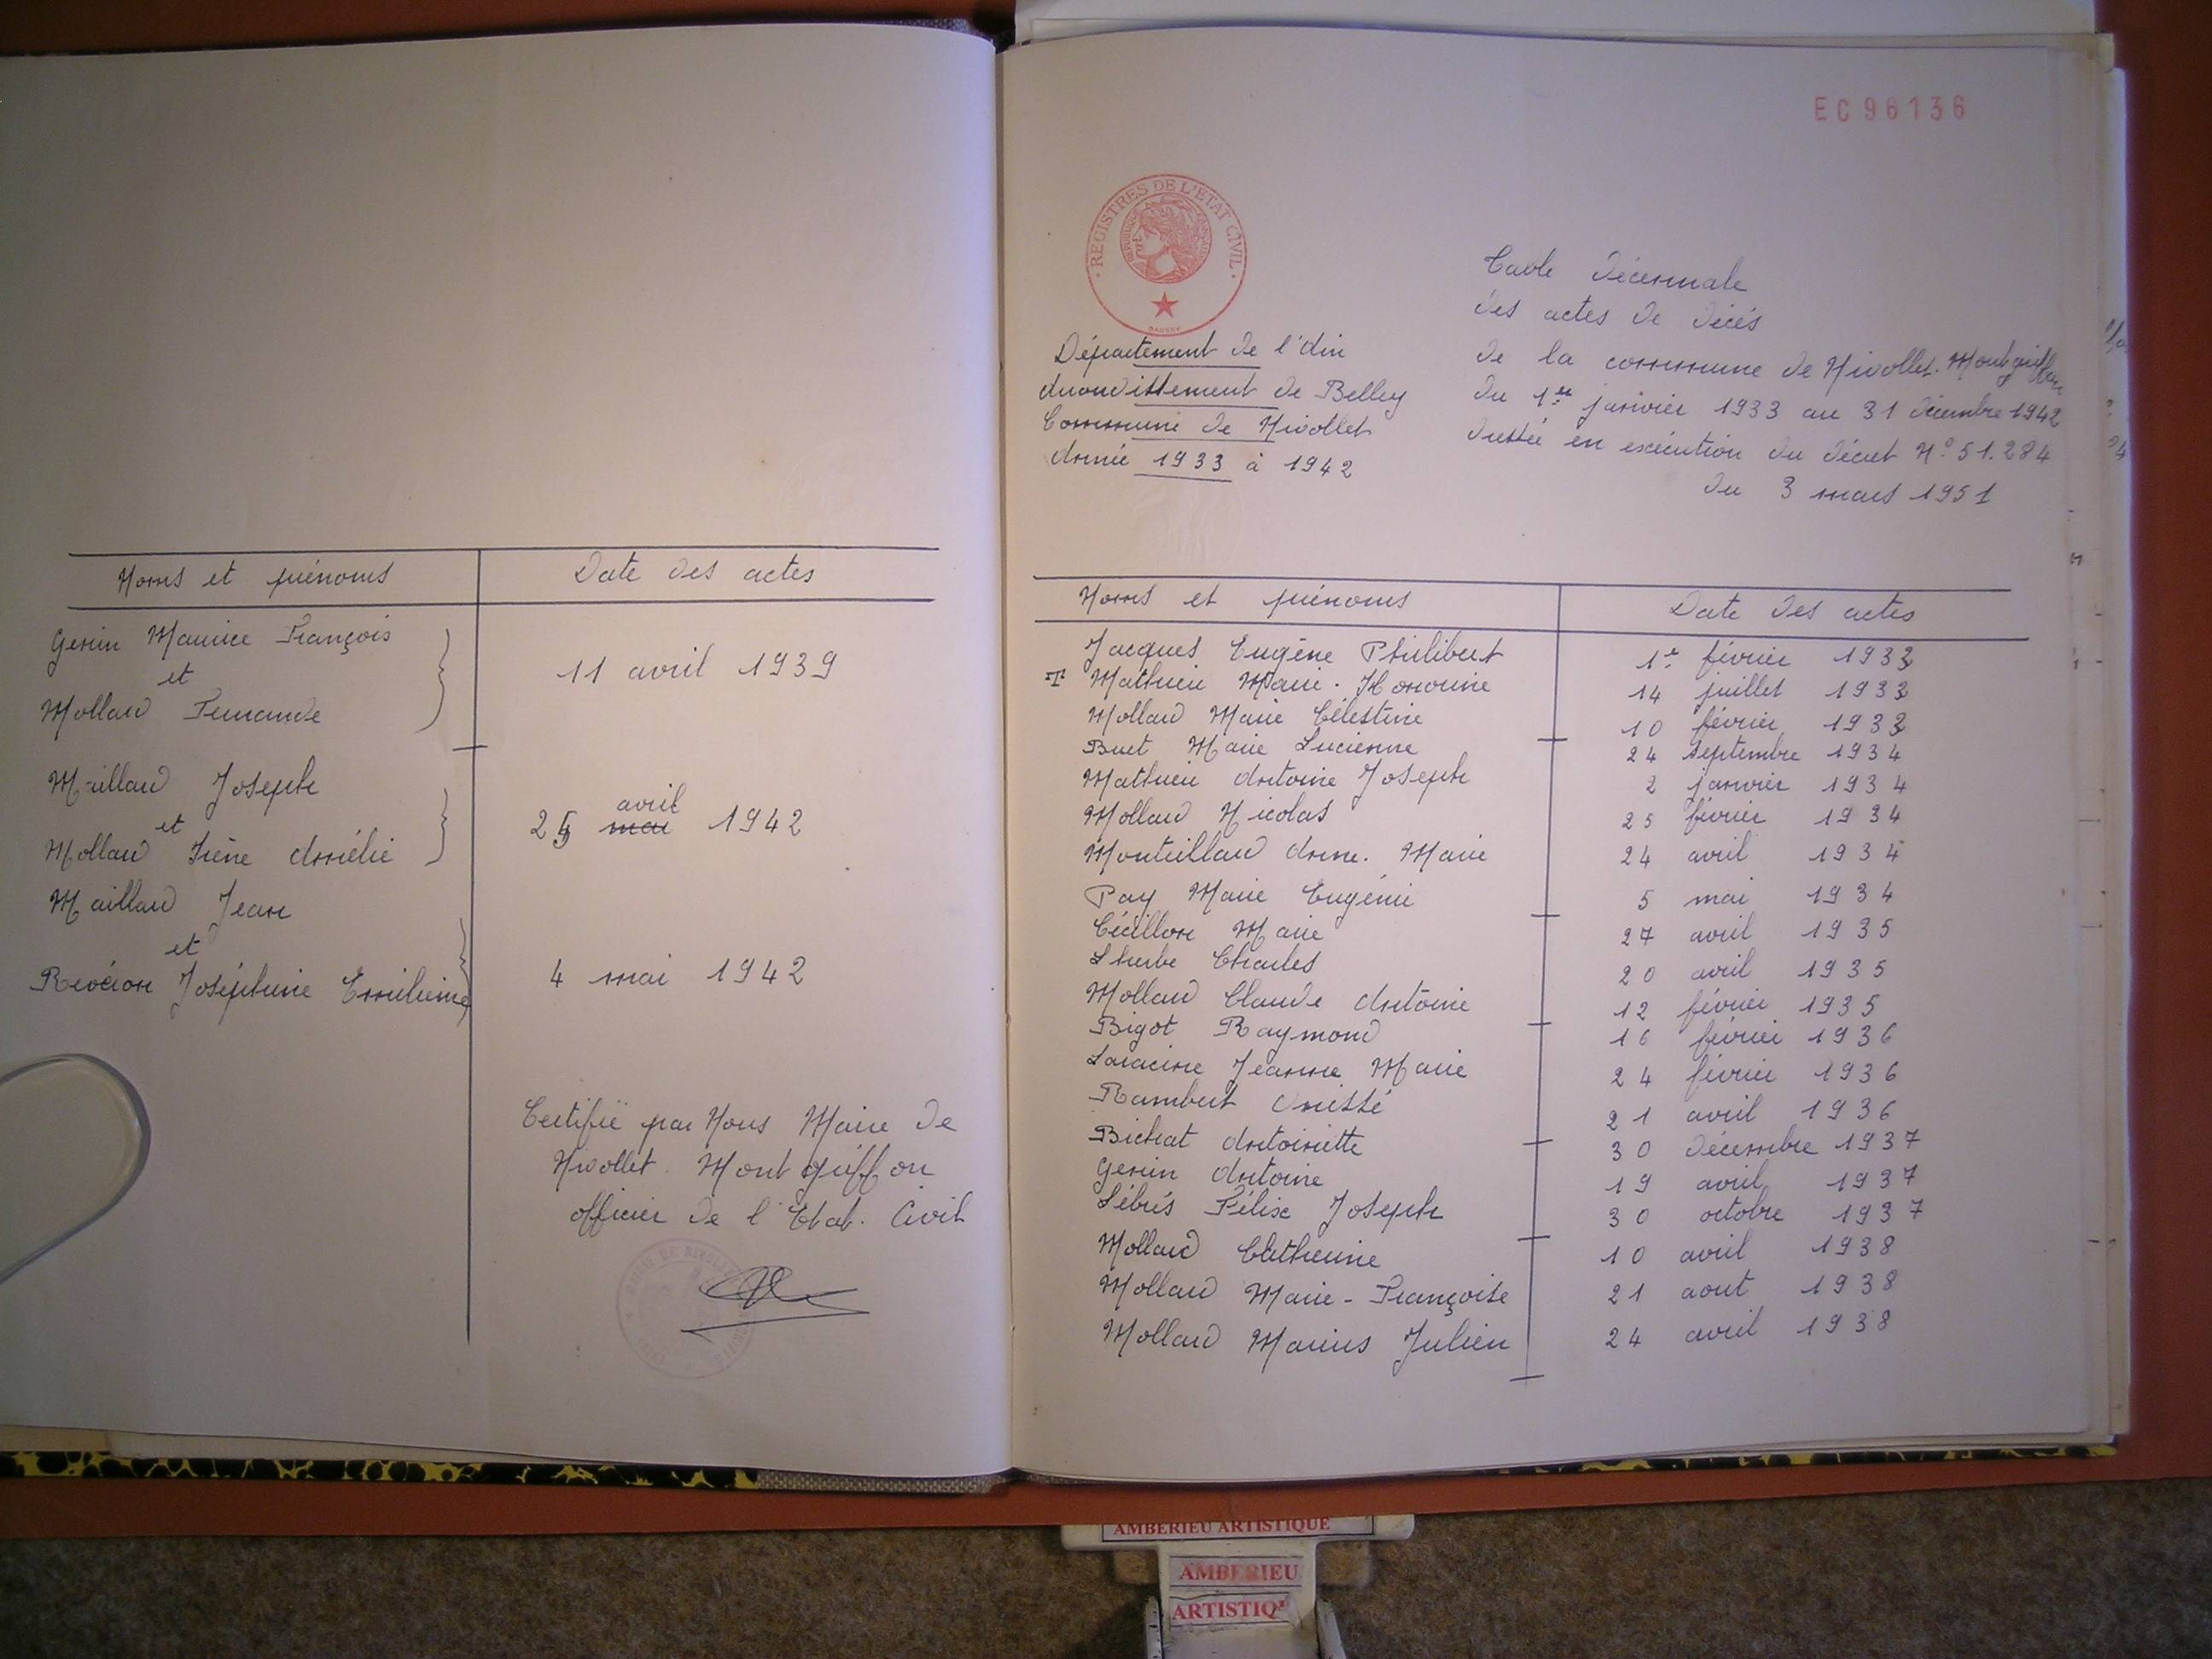 Noms et prénoms Date des actes
Genin Maurice François
et 11 avril 1939
Mollard Fernande
Maillard Joseph
et 25 mai avril 1942
Mollard Irène Amélie
Maillard Jean
et 4 mai 1942
Joséphine
Certifié par Nous Maire de
Nivollet. Montgriffon
officier de l'Etat. Civil
EC 96136
REGISTRES DE L'ETAT CIVIL
Département de l'Ain
Arrondissement de Belley
Commune de Nivollet
Année 1933 à 1942
Table Décennale
des actes de Décès
de la commune de Nivollet. Montgriffon
du 1er janvier 1933 au 31 Décembre 1942
Dressée en exécution du Décret N° 51.284
du 3 mars 1951
Noms et prénoms Date des actes
Jacques Eugène Philibert 1er février 1933
Mathieu Marie. Honorine 14 juillet 1933
Mollard Marie Célestine 10 février 1933
Buet Marie Lucienne 24 septembre 1934
Mathieu Antoine Joseph 2 janvier 1934
Mollard Nicolas 25 février 1934
Monteillard Anne. Marie 24 avril 1934
Pay Marie Eugénie 5 mai 1934
Cécillon Marie 27 avril 1935
Lherbe Charles 20 avril 1935
Mollard Claude Antoine 12 février 1935
Bigot Raymond 16 février 1936
Laracine Jeanne Marie 24 février 1936
Rambert 21 avril 1936
Bichat Antoinette 30 Décembre 1937
Genin Antoine 19 avril 1937
Félix Joseph 30 octobre 1937
Mollard Catherine 10 avril 1938
Mollard Marie-Françoise 21 aout 1938
Mollard Marius Julien 24 avril 1938
AMBERIEU ARTISTIQUE
AMBERIEU
ARTISTIQ